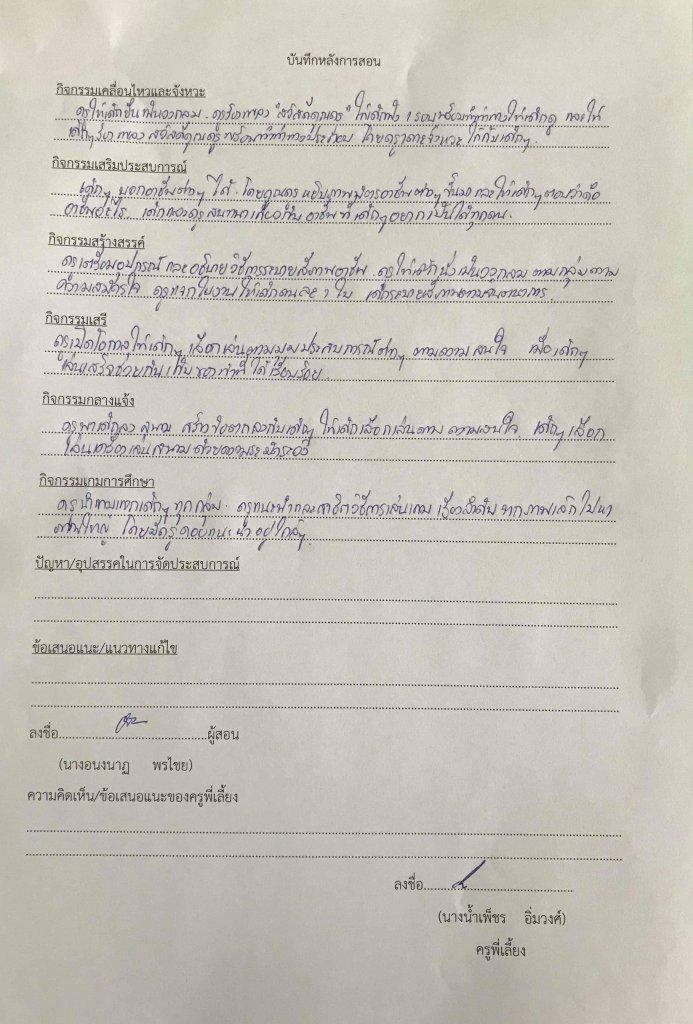 บันทึกหลังการสอน
กิจกรรมเคลื่อนไหวและจังหวะ
ครูให้เด็กยืนเป็นวงกลม ครูร้องเพลง "สวัสดีคุณครู" ให้เด็กฟัง 1 รอบพร้อมทำท่าทางให้เด็กดู และให้
เด็กๆ ร้องเพลง สวัสดีคุณครู พร้อมทำท่าทางประกอบ โดยครูเคาะจังหวะ ให้กับเด็กๆ.
กิจกรรมเสริมประสบการณ์
เด็กๆ บอกอาชีพต่างๆ ได้. โดยคุณครู หยิบภาพ อาชีพต่างๆ ขึ้นมา และให้เด็กๆ ตอบว่าคือ
อาชีพอะไร. เด็กและครูสนทนาเกี่ยวกับ อาชีพ ที่ เด็กๆ อยากเป็นได้ทุกคน.
กิจกรรมสร้างสรรค์
ครูเตรียมอุปกรณ์ และอธิบาย วิธีการระบายสีภาพอาชีพ ครูให้เด็ก นั่งเป็นวงกลม ตามกลุ่มตาม
ความสมัครใจ ครูแจกใบงานให้เด็กคนละ 1 ใบ เด็กระบายสีภาพตามจินตนาการ.
กิจกรรมเสรี
ครูเปิดโอกาสให้เด็กๆ เลือกเล่นตามมุมประสบการณ์ต่างๆ ตามความสนใจ เมื่อเด็กๆ
เล่นเสร็จช่วยกันเก็บของเข้าที่ ได้เรียบร้อย.
กิจกรรมกลางแจ้ง
ครูพาเด็กลง สนาม สร้างข้อตกลงกับเด็กๆ ให้เด็กเลือกเล่นตาม ความสนใจ เด็กๆ เลือก
เล่นเครื่องเล่นสนามด้วยความระมัดระวัง
กิจกรรมเกมการศึกษา
ครูนำเกมแจกเด็กๆ ทุกกลุ่ม. ครูแนะนำและสาธิตวิธีการเล่นเกม เรียงลำดับ จากภาพเล็กไปหา
ภาพใหญ่ โดยมีครูคอยแนะนำอยู่ใกล้ๆ.
ปัญหา/อุปสรรคในการจัดประสบการณ์
ข้อเสนอแนะ/แนวทางแก้ไข
ลงชื่อ ผู้สอน
(นางอนงนาฏ พรไชย)
ความคิดเห็น/ข้อเสนอแนะของครูพี่เลี้ยง
ลงชื่อ
(นางน้ำเพ็ชร อิ่มวงศ์)
ครูพี่เลี้ยง